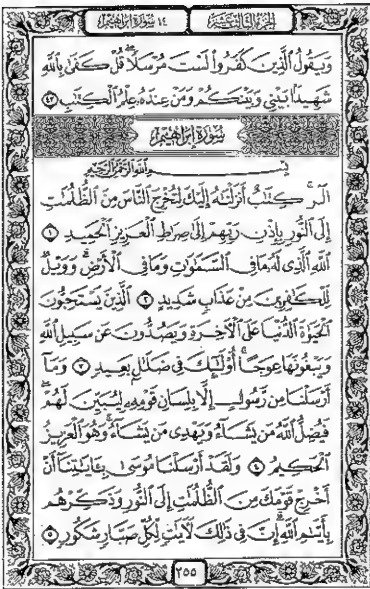 الجزء الثالث عشر
١٤ سورة إبراهيم
وَيَقُولُ ٱلَّذِينَ كَفَرُوا۟ لَسْتَ مُرْسَلًا ۚ قُلْ كَفَىٰ بِٱللَّهِ
شَهِيدًۢا بَيْنِى وَبَيْنَكُمْ وَمَنْ عِندَهُۥ عِلْمُ ٱلْكِتَٰبِ ٤٣
سُورَةُ إِبْرَاهِيمَ
بِسْمِ ٱللَّهِ ٱلرَّحْمَٰنِ ٱلرَّحِيمِ
الٓر ۚ كِتَٰبٌ أَنزَلْنَٰهُ إِلَيْكَ لِتُخْرِجَ ٱلنَّاسَ مِنَ ٱلظُّلُمَٰتِ
إِلَى ٱلنُّورِ بِإِذْنِ رَبِّهِمْ إِلَىٰ صِرَٰطِ ٱلْعَزِيزِ ٱلْحَمِيدِ ١
ٱللَّهِ ٱلَّذِى لَهُۥ مَا فِى ٱلسَّمَٰوَٰتِ وَمَا فِى ٱلْأَرْضِ ۗ وَوَيْلٌ
لِّلْكَٰفِرِينَ مِنْ عَذَابٍ شَدِيدٍ ٢ ٱلَّذِينَ يَسْتَحِبُّونَ
ٱلْحَيَوٰةَ ٱلدُّنْيَا عَلَى ٱلْءَاخِرَةِ وَيَصُدُّونَ عَن سَبِيلِ ٱللَّهِ
وَيَبْغُونَهَا عِوَجًا ۚ أُو۟لَٰٓئِكَ فِى ضَلَٰلٍۭ بَعِيدٍ ٣ وَمَآ
أَرْسَلْنَا مِن رَّسُولٍ إِلَّا بِلِسَانِ قَوْمِهِۦ لِيُبَيِّنَ لَهُمْ ۖ
فَيُضِلُّ ٱللَّهُ مَن يَشَآءُ وَيَهْدِى مَن يَشَآءُ ۚ وَهُوَ ٱلْعَزِيزُ
ٱلْحَكِيمُ ٤ وَلَقَدْ أَرْسَلْنَا مُوسَىٰ بِـَٔايَٰتِنَآ أَنْ
أَخْرِجْ قَوْمَكَ مِنَ ٱلظُّلُمَٰتِ إِلَى ٱلنُّورِ وَذَكِّرْهُم
بِأَيَّىٰمِ ٱللَّهِ ۚ إِنَّ فِى ذَٰلِكَ لَءَايَٰتٍ لِّكُلِّ صَبَّارٍ شَكُورٍ ٥
٢٥٥